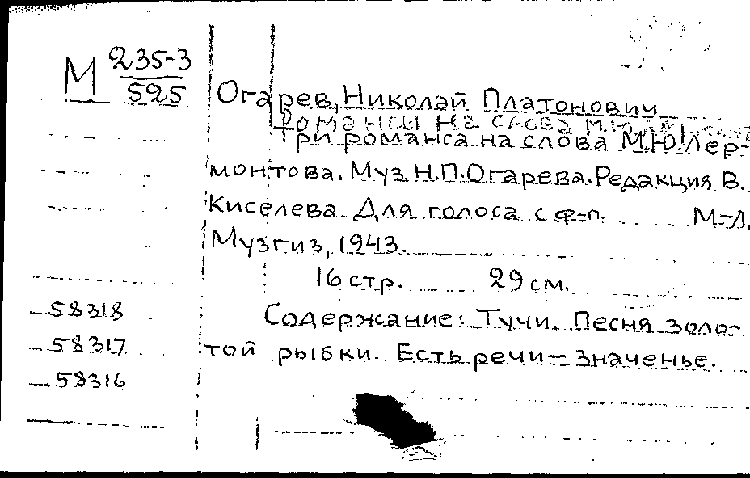 М 235-3
525
Огарев, Николай Платонович
Романсы на слова М.Ю.
Три романса на слова М.Ю. Лер-
монтова. Муз. Н.П. Огарева. Редакция В.
Киселева. Для голоса с ф-п. М-Л.
Музгиз, 1943.
16 стр. 29 см.
58318
Содержание: Тучи. Песня золо-
58317
той рыбки. Есть речи – значенье.
58316